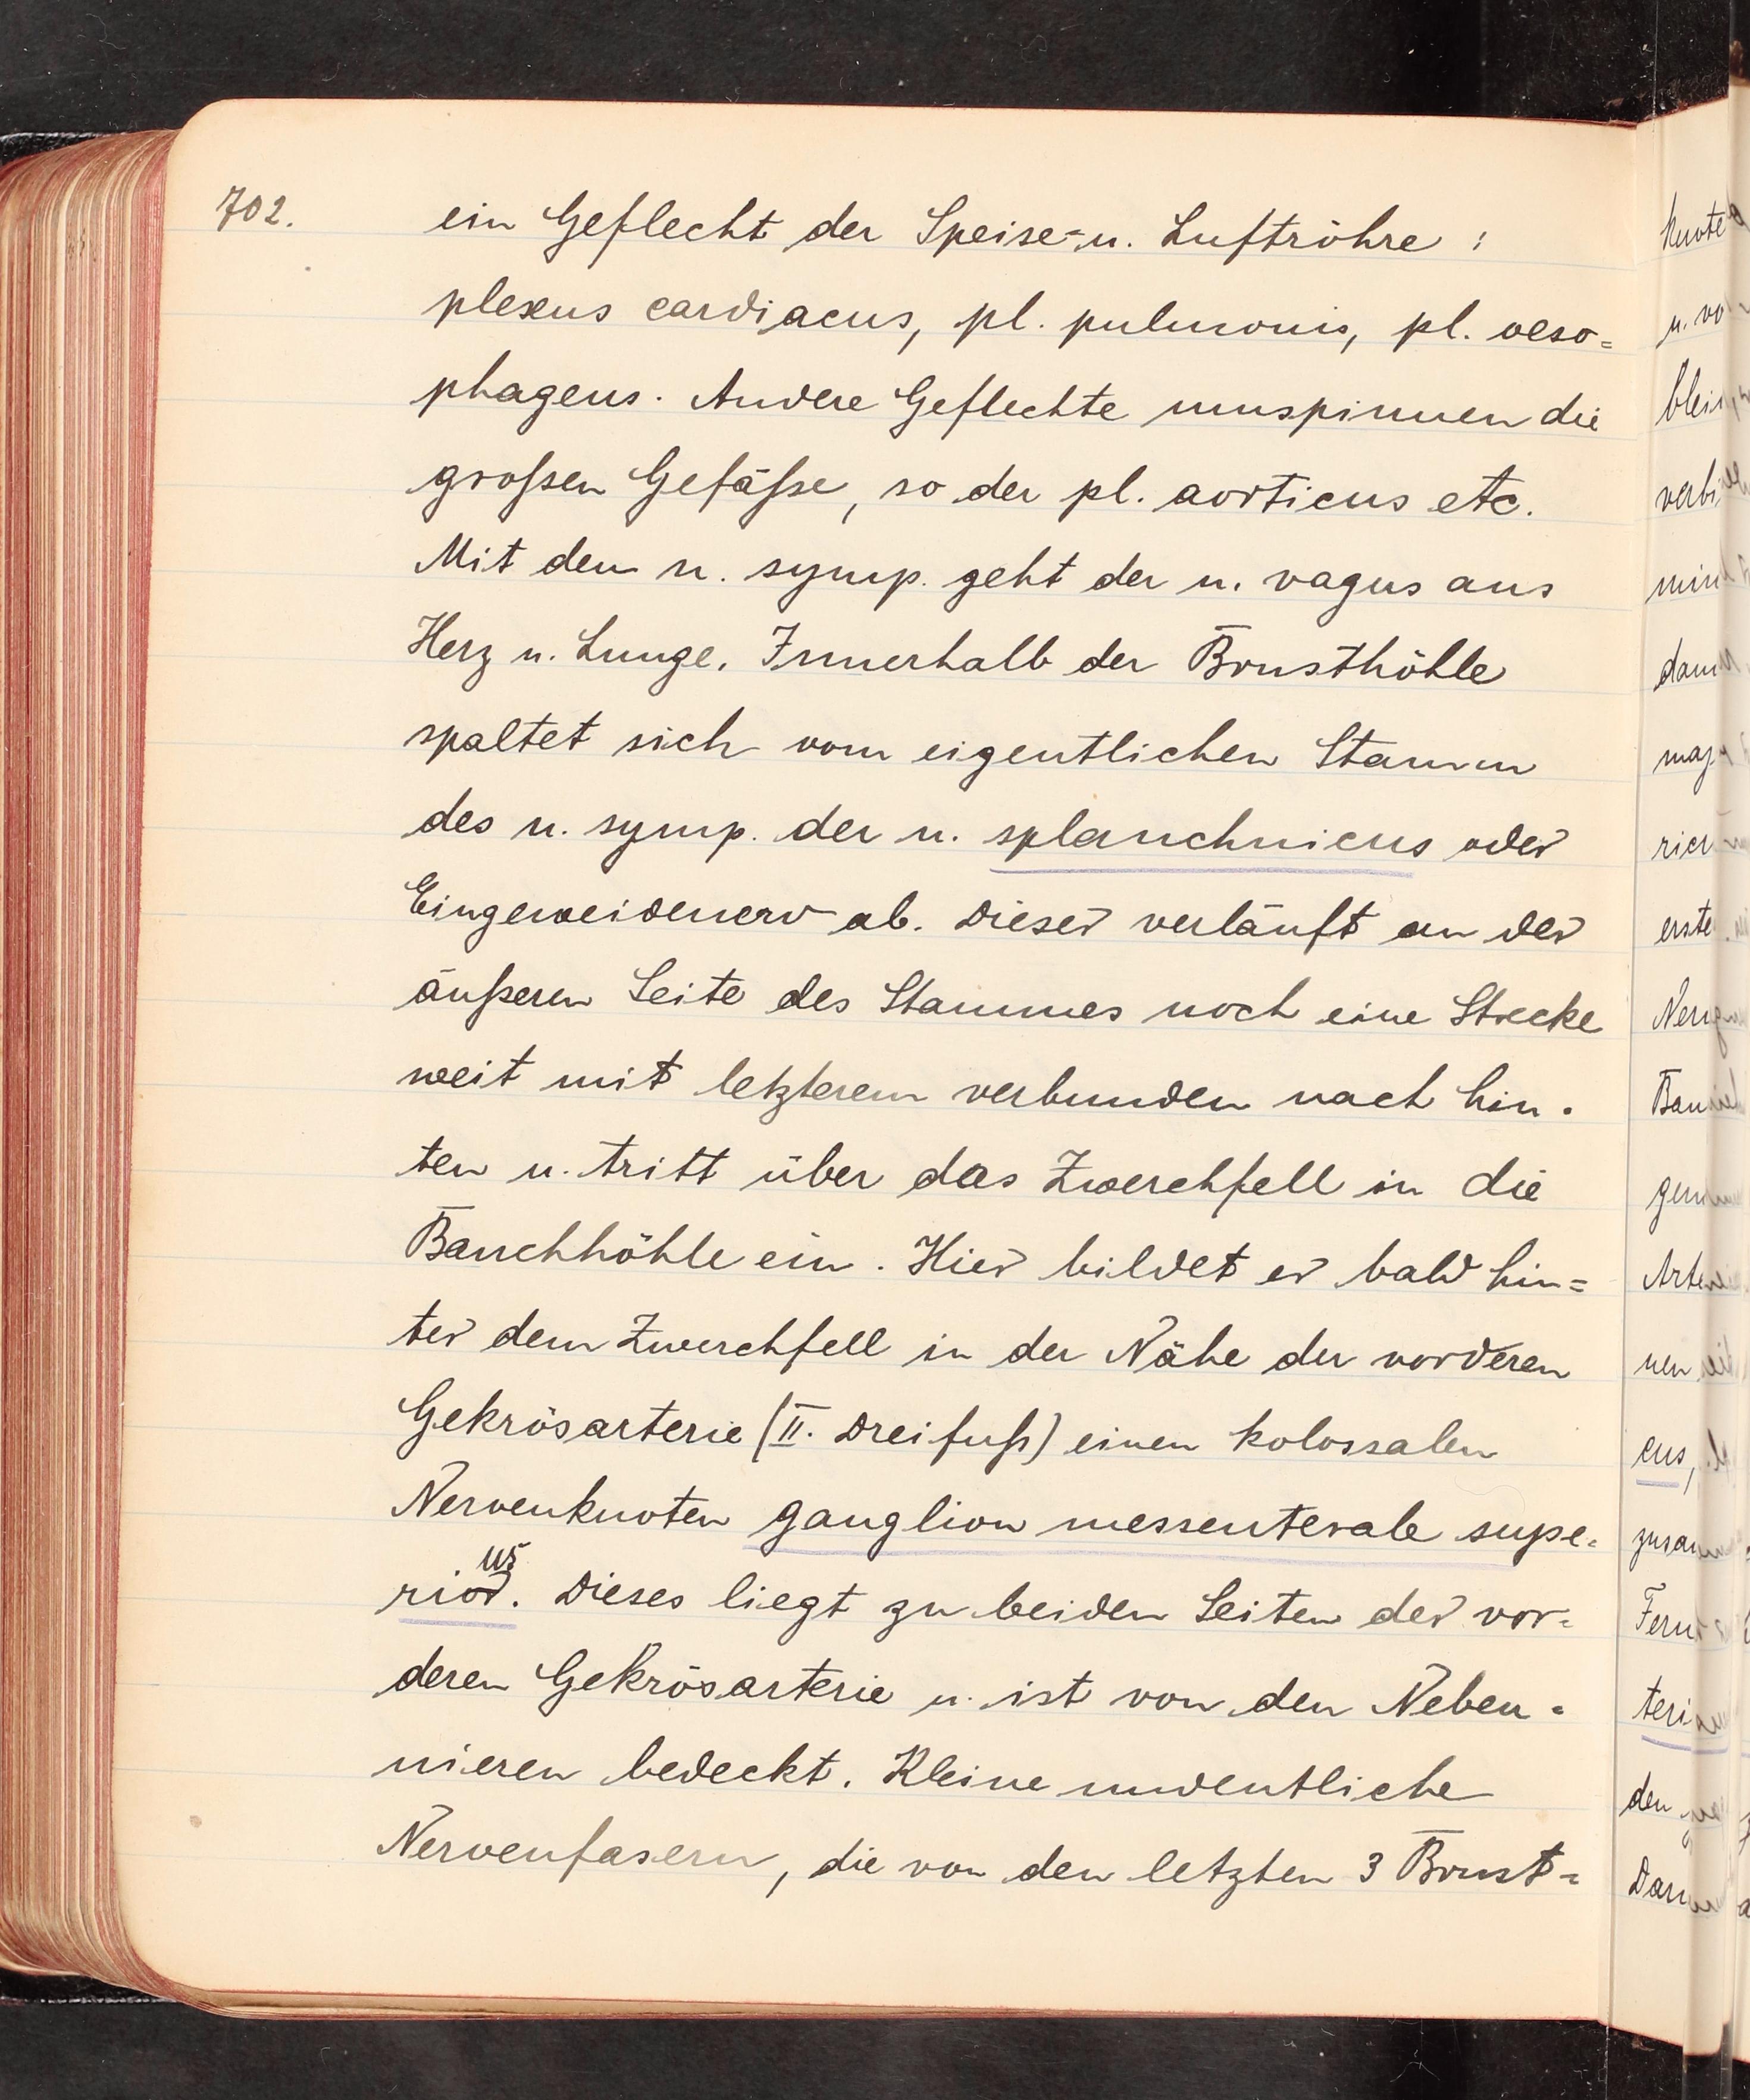 702.
ein Geflecht der Speise- u. Luftröhre :
plexus cardiacus, pl. pulmonis, pl. oeso=
phageus. Andere Geflechte umspinnen die
großen Gefäße, so der pl. aorticus etc.
Mit dem n. symp. geht der n. vagus ans
Herz u. Lunge. Innerhalb der Brusthöhle
spaltet sich vom eigentlichen Stamm
des n. symp. der n. splanchnicus oder
Eingeweidenerv ab. Dieser verläuft an der
äußeren Seite des Stammes noch eine Strecke
weit mit letzterem verbunden nach hin-
ten u. tritt über das Zwerchfell in die
Bauchhöhle ein. Hier bildet er bald hin=
ter dem Zwerchfell in der Nähe der vorderen
Gekrösarterie (II. Dreifuß) einen kolossalen
Nervenknoten ganglion messenterale supe=
us
rior. Dieses liegt zu beiden Seiten der vor=
deren Gekrösarterie u. ist von den Neben=
nieren bedeckt. Kleine undeutliche
Nervenfasern, die von den letzten 3 Brust=